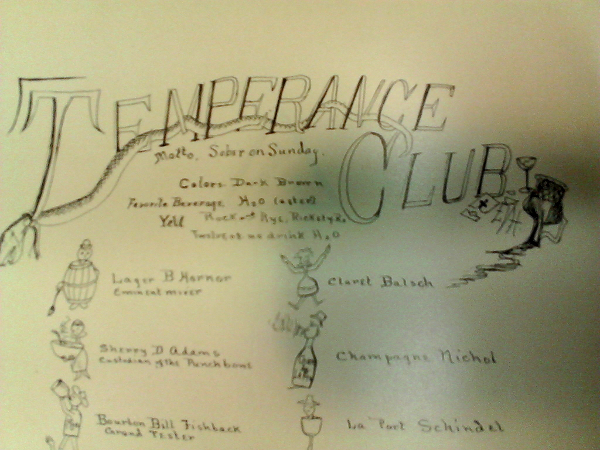 TEMPERANCE
CLUB
Motto. Sober on Sunday.
Colors Dark Brown
Favorite Beverage H2O (after)
Yell Rock and Rye, Rickety
Twelve of us drink H2O
Lager B Hornor
Eminent mixer
Claret Balsch
Sherry D Adams
Custodian of the Punch bowl
Champagne Nichol
Bourbon Bill Fishback
Grand Tester
La Port Schindel